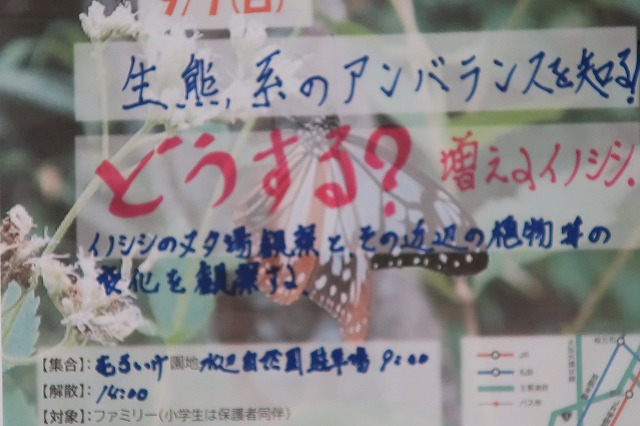 9/7(日)
生熊、系のアンバランスを知る!
どうする? 増えるイノシシ.
イノシシのヌタ場観察と、その近辺の植物等の
変化を観察する.
【集合】: むろいけ園地水辺自然園駐車場 9:00
【解散】: 14:00
【対象】: ファミリー(小学生は保護者同伴)
JR
私鉄
主要道路
バス停